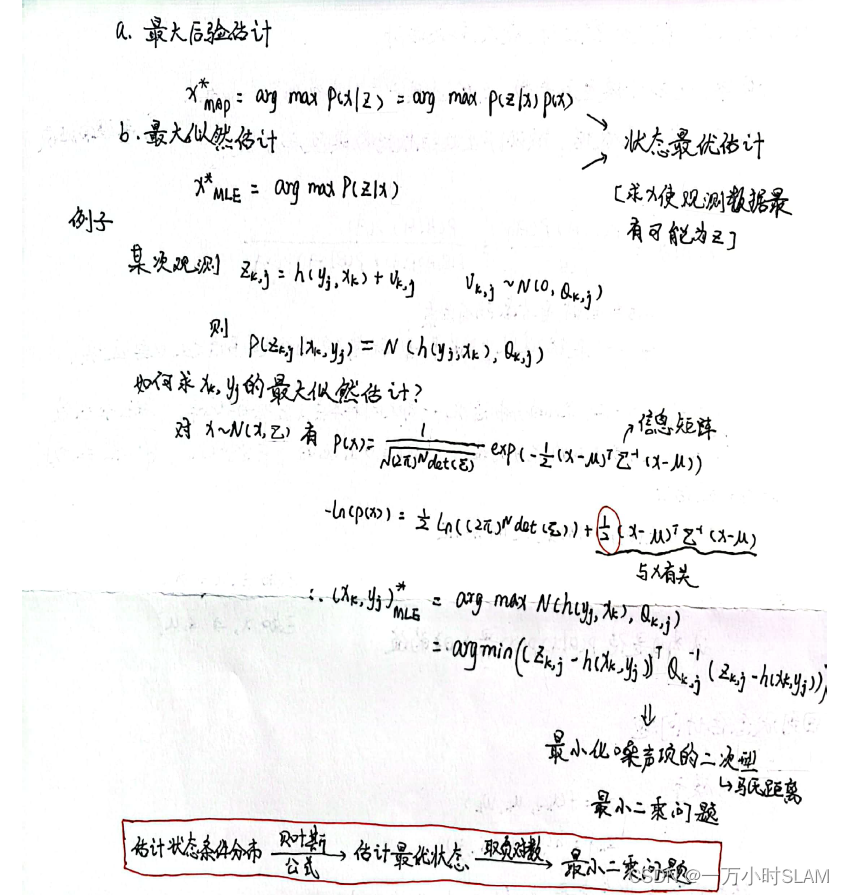 a. 最大后验估计
x*MAP = arg max P(x|z) = arg max P(z|x)P(x)
b. 最大似然估计
x*MLE = arg max P(z|x)
状态最优估计
[求x使观测数据最
有可能为z]
例子
某次观测 z_{k,j} = h(y_j, x_k) + v_{k,j} v_{k,j} ~ N(0, Q_{k,j})
则 P(z_{k,j}|x_k, y_j) = N(h(y_j, x_k), Q_{k,j})
如何求 x_k, y_j 的最大似然估计?
对 x~N(x, Σ) 有 P(x) = 1/√((2π)^N det(Σ)) exp(-½(x-μ)^T Σ^{-1}(x-μ))
信息矩阵
-ln(p(x)) = ½ ln((2π)^N det(Σ)) + ½(x-μ)^T Σ^{-1}(x-μ)
与x有关
∴ (x_k, y_j)*MLE = arg max N(h(y_j, x_k), Q_{k,j})
= argmin((z_{k,j} - h(x_k, y_j))^T Q_{k,j}^{-1}(z_{k,j} - h(x_k, y_j)))
⇓
最小化噪声项的二次型
↳马氏距离
最小二乘问题
估计状态条件分布 贝叶斯公式→ 估计最优状态 取负对数→ 最小二乘问题
CSDN @一万小时SLAM